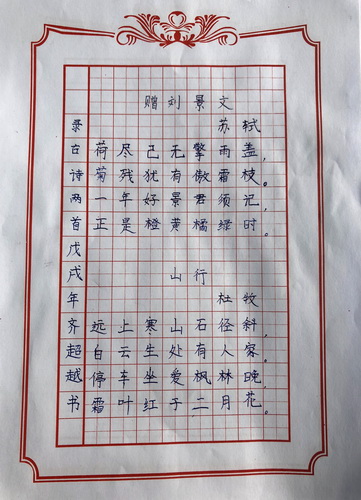 赠刘景文
苏轼
荷尽已无擎雨盖，
菊残犹有傲霜枝。
一年好景君须记，
正是橙黄橘绿时。
山行
杜牧
远上寒山石径斜，
白云生处有人家。
停车坐爱枫林晚，
霜叶红于二月花。
录古诗两首戊戌年齐超越书